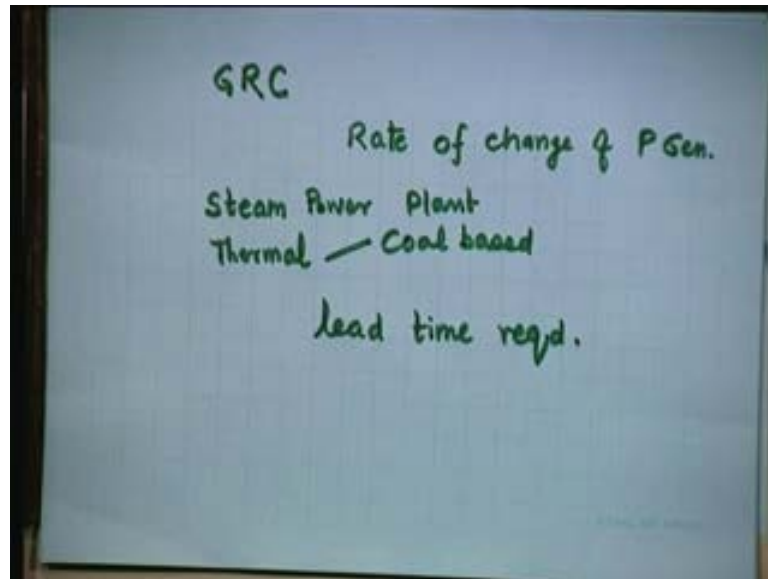 GRC
Rate of change of P Gen.
Steam Power Plant
Thermal — Coal based
lead time reqd.